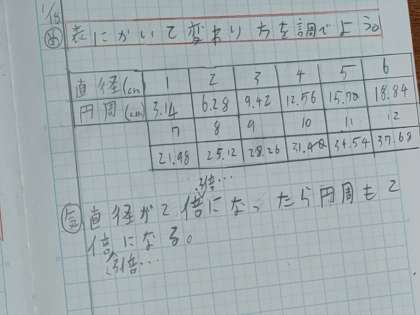 1/18
め 表にかいて変わり方を調べよう。
直径(cm) 1 2 3 4 5 6
円周(cm) 3.14 6.28 9.42 12.56 15.70 18.84
7 8 9 10 11 12
21.98 25.12 28.26 31.40 34.54 37.68
3倍…
直径が2倍になったら円周も2
倍になる。
3倍…